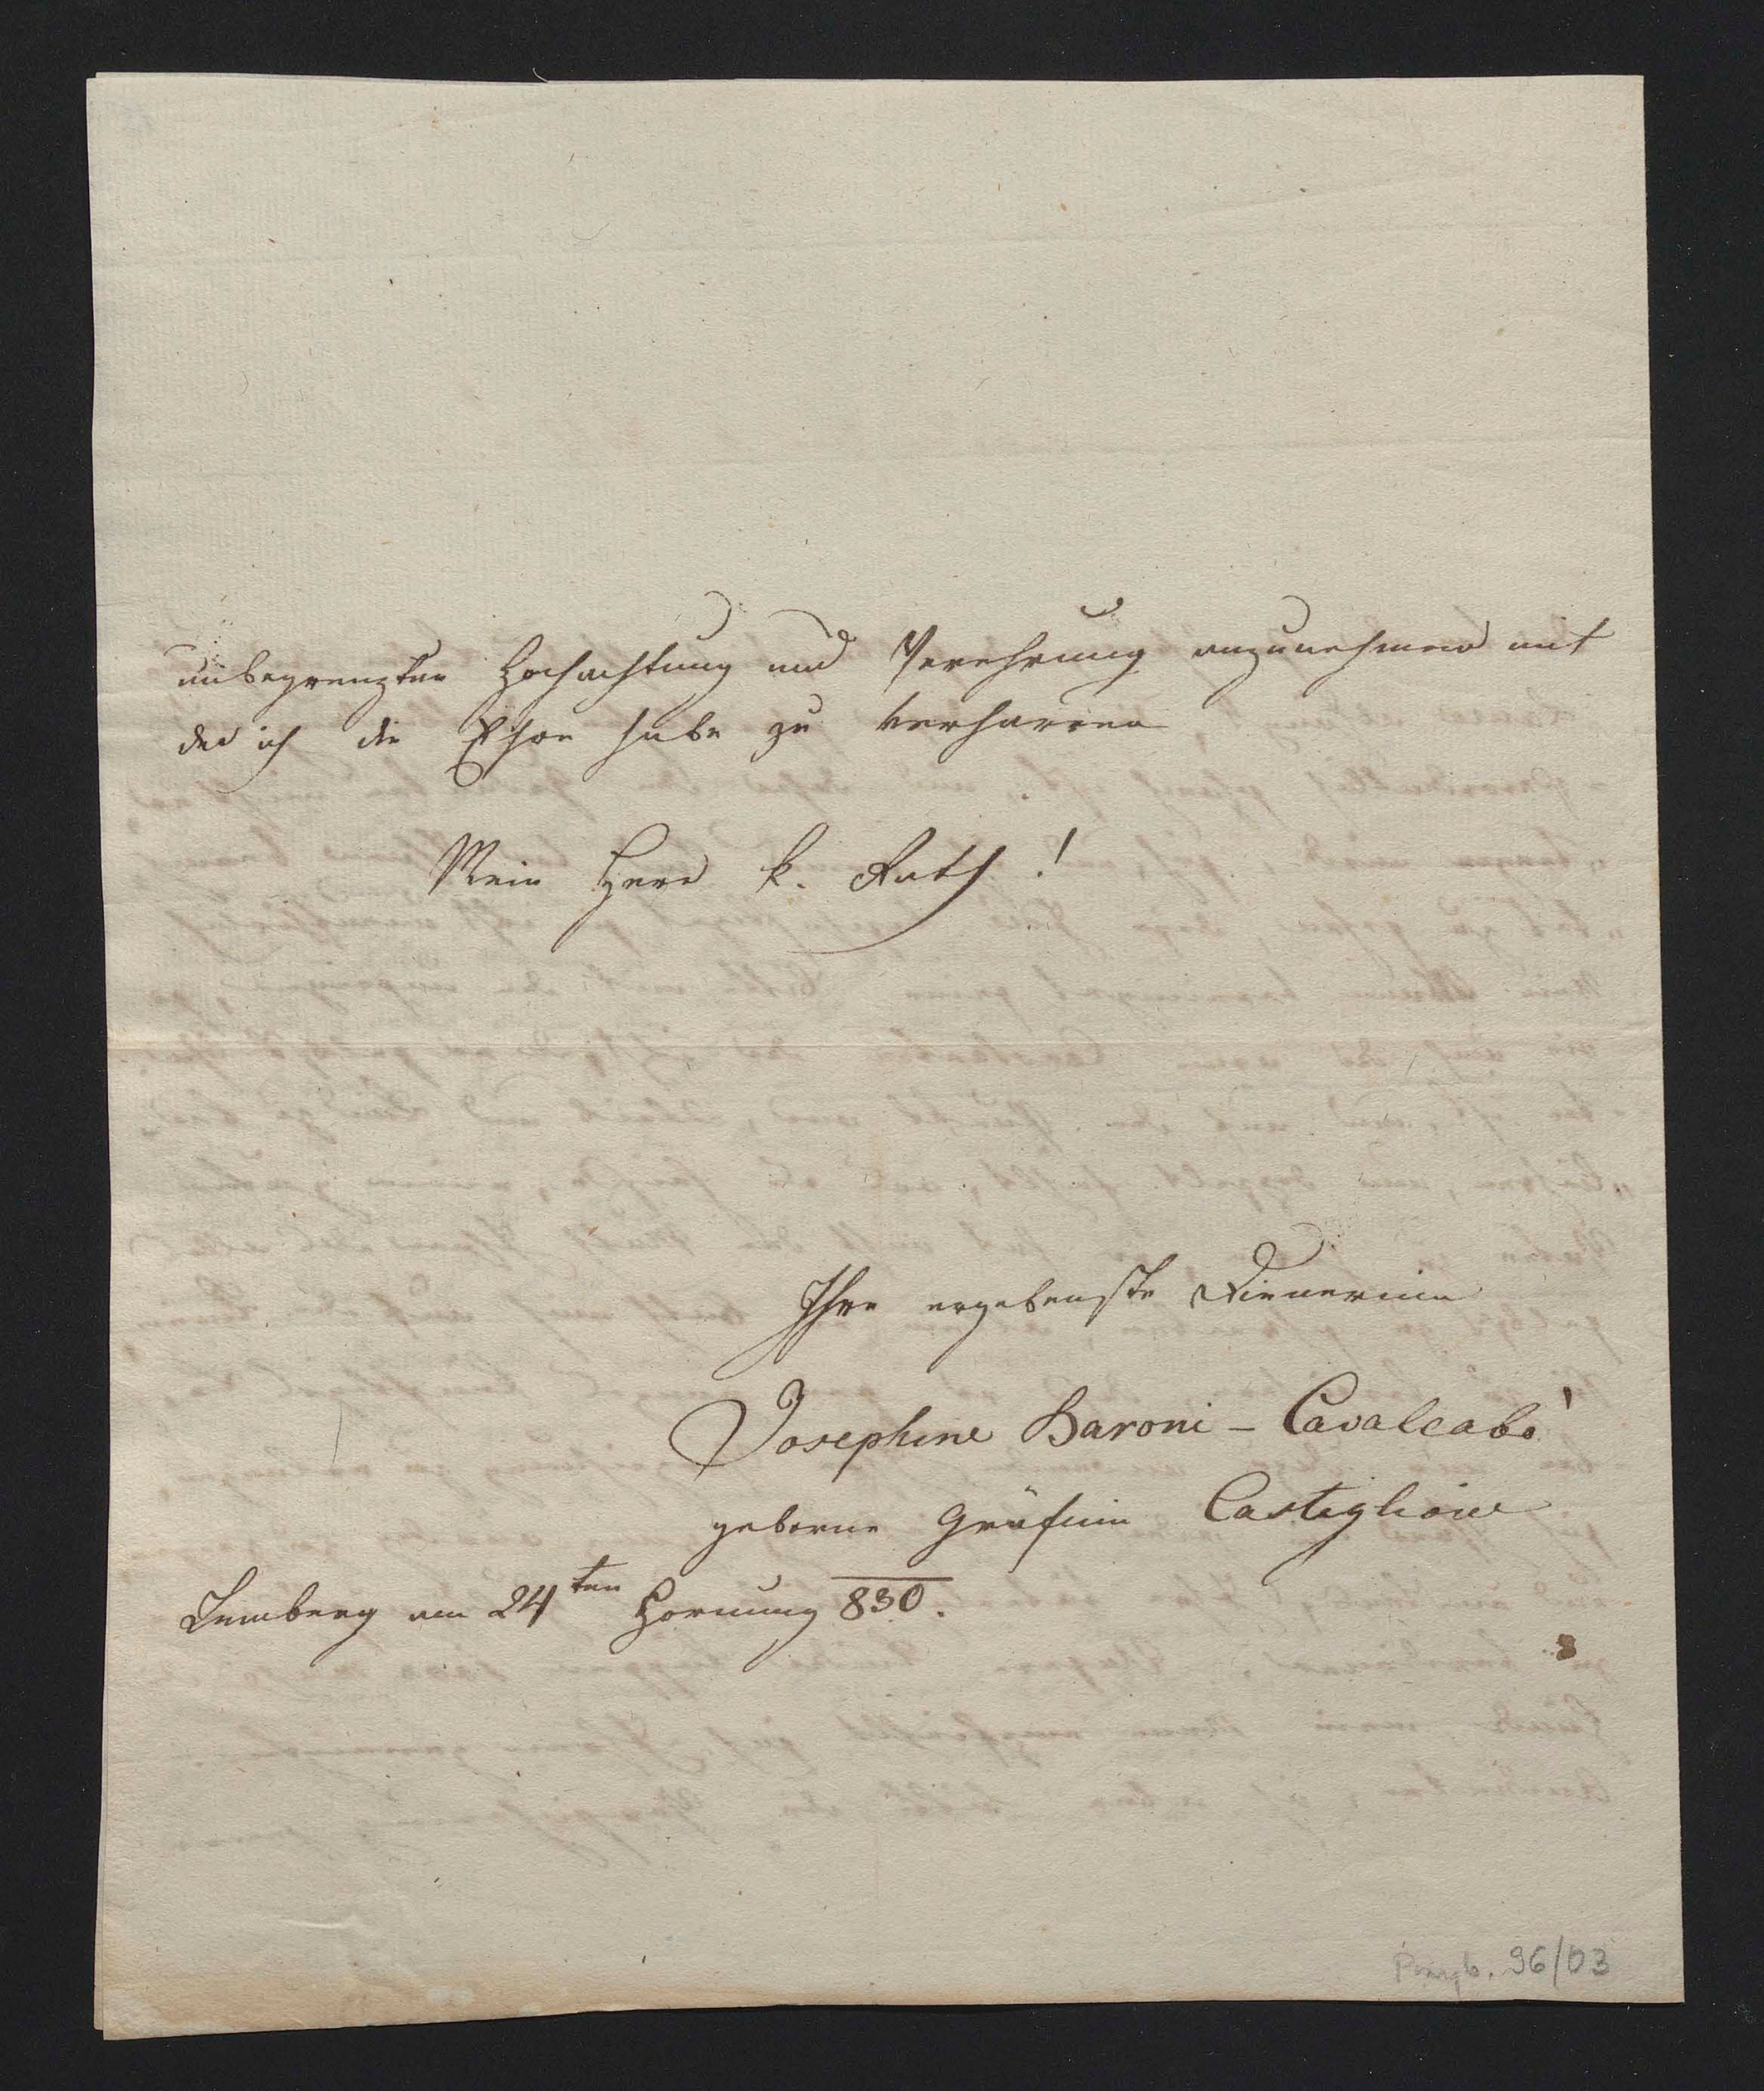 unbegrenzten Hochachtung und Verehrung anzunehmen mit
der ich die Ehre habe zu verharren
Mein Herr k. Rath!
Ihre ergebenste Dienerinn
Josephine Baroni - Cavalcabò
geborne Gräfinn Castiglione
Lemberg am 24ten Hornung 830.
96/03